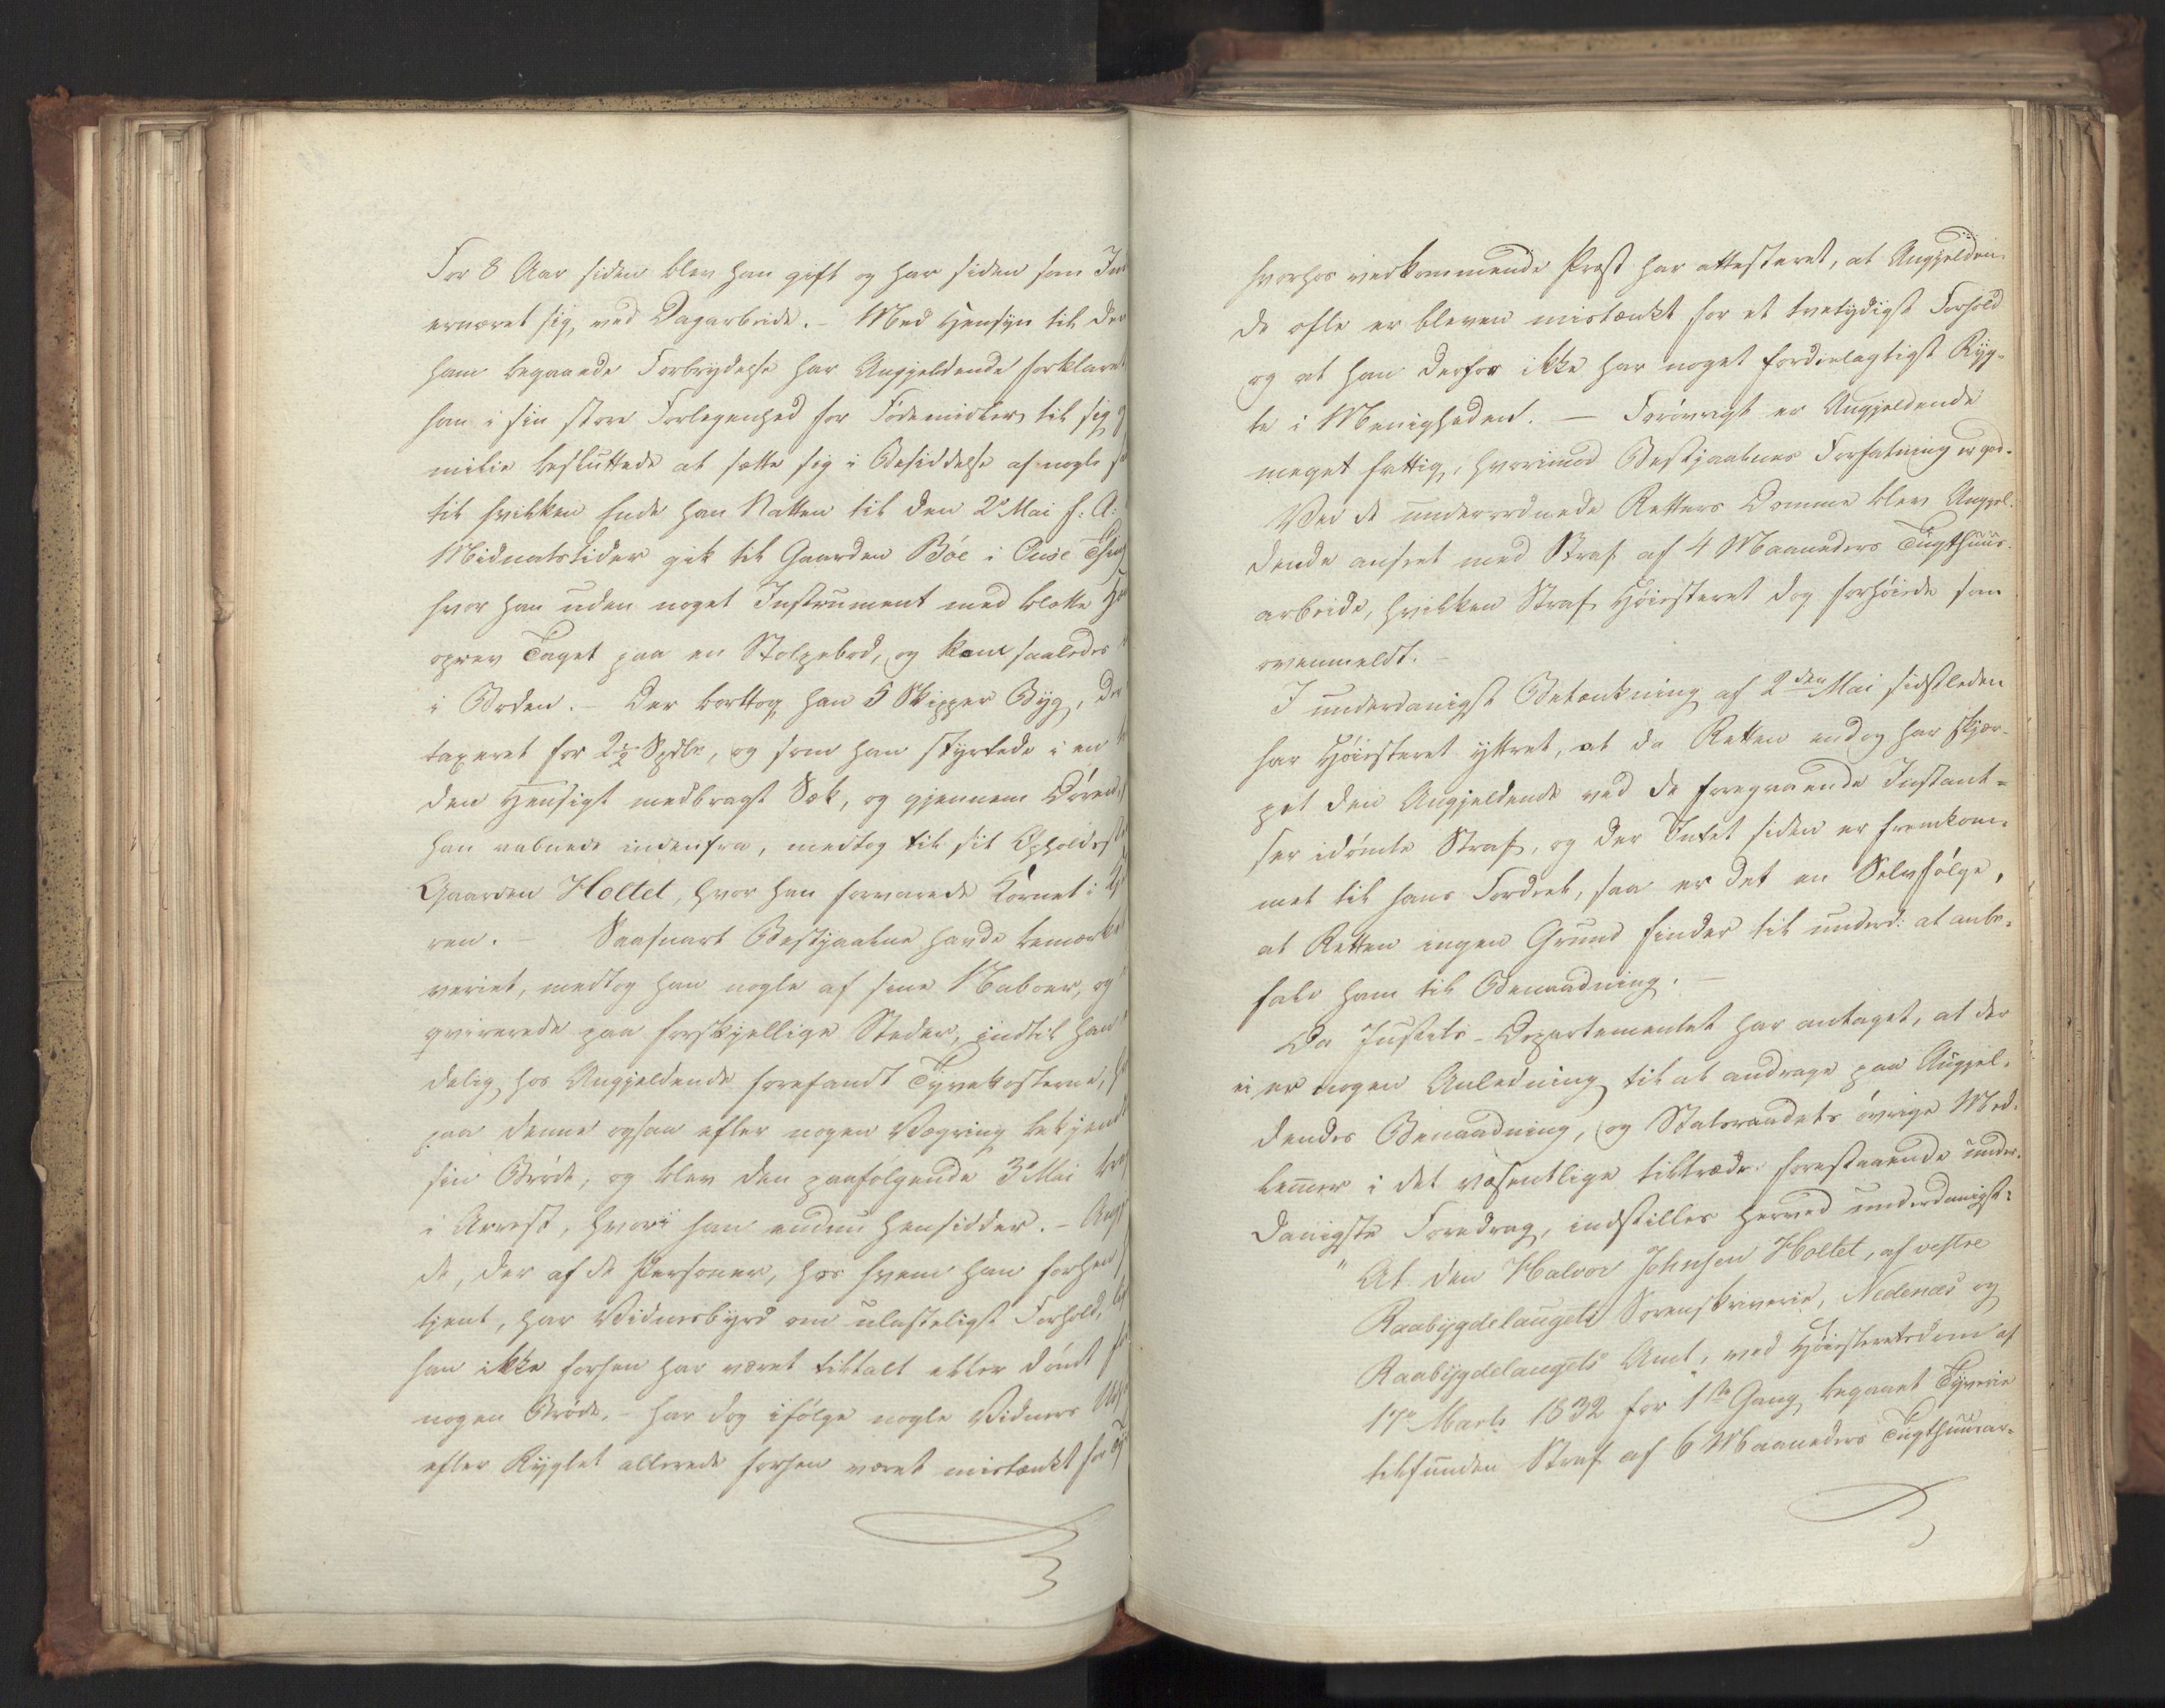 For 8 Aar siden blev han gift og har siden som In
ernæret sig ved Dagarbeide. – Med Hensyn til den
ham begaaede Forbrydelse har Angjeldende forklaret
han i sin store Forlegenhed for Fødemidler til sig
milie besluttede at sætte sig i Besiddelse af nogle
til hvilken Ende han Natten til den 2' Mai f: A:
Midnatstider gik til Gaarden Bøe i Ouse Thing
hvor han uden noget Instrument med blotte
oprev Taget paa en Stolpebod, og kom saaledes
i Boden. – Der borttog han 5 Skipper Byg, der
taxeret for 2½ Spdlr, og som han styrtede i en
den Hensigt medbragt Sæk, og gjennem Døren,
han aabnede indenfra, medtog til sit Opholdsst
Gaarden Holtet, hvor han forvarede Kornet i
ren. – Saasnart Bestjaalne havde bemærket
veriet, medtog han nogle af sine Naboer, og
qvirerede paa forskjellige Steder, indtil han
delig hos Angjeldende forefandt Tyvekosterne,
paa denne ogsaa efter nogen Vægring bekjend
sin Brøde, og blev den paafølgende 3' Mai
i Arrest, hvori han endnu hensidder. – Angj
de, der af de Personer, hos hvem han forhen
tjent, har Vidnesbyrd om ulasteligt Forhold,
han ikke forhen har været tiltalt eller dømt
nogen Brøde, – har dog ifølge nogle Vidners
efter Rygtet allerede forhen været mistænkt for
hvorhos vedkommende Præst har attesteret, at Angjelden-
de ofte er bleven mistænkt for et tvetydigt Forhold
og at han derfor ikke har noget fordeelagtigt Ryg-
te i Menigheden. — Forøvrigt er Angjeldende
meget fattig, hvorimod Bestjaalnes Forfatning er god.
Ved de underordnede Retters Domme blev Angjel-
dende anseet med Straf af 4 Maaneders Tugthuus-
arbeide, hvilken Straf Høiesteret dog forhøiede som
ovenmeldt. –
I underdanigst Betænkning af 2den Mai sidstleden
har Høiesteret yttret, at da Retten endog har skjær-
pet den Angjeldende ved de foregaaende Instant-
ser idømte Straf, og der Intet siden er fremkom-
met til hans Fordeel, saa er det en Selvfølge,
at Retten ingen Grund finder til underd: at anbe-
fale ham til Benaadning. –
Da Justits-Departementet har antaget, at der
ei er nogen Anledning til at andrage paa Angjel-
dendes Benaadning, og Statsraadets øvrige Med-
lemer i det væsentlige tiltræde forestaaende under-
danigste Foredrag, indstilles herved underdanigst:
"At den Halvor Johnsen Holtet, af vestre
Raabygdelaugets Sorenskriverie, Nedenæs og
Raabygdelaugets Amt, ved Høiesteretsdom af
17' Marts 1832 for 1ste Gang begaaet Tyverie
tilfunden Straf af 6 Maaneders Tugthuusar-